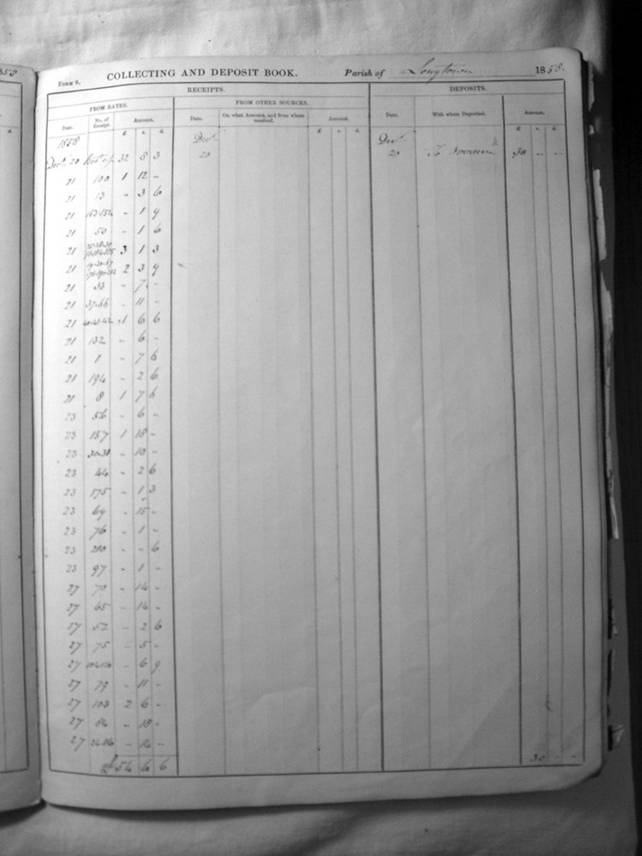 1858
Form 8. COLLECTING AND DEPOSIT BOOK. Parish of Longtown 1858.
RECEIPTS. DEPOSITS.
FROM RATES. FROM OTHER SOURCES.
Date. No. of Receipt. Amount. Date. On what Account, and from whom received. Amount. Date. With whom Deposited. Amount.
£ s. d. £ s. d. £ s. d.
1858 Decr Decr
Decr 20 32 8 3 20 20 30 - -
21 100 1 12 -
21 13 - 3 6
21 - 1 9
21 50 - 1 6
21 3 1 3
21 2 3 9
21 33 - 7 -
21 37.66 - 11 -
21 1 6 6
21 132 - 6 -
21 1 - 7 6
21 194 - 2 6
21 8 1 7 6
23 56 - 6 -
23 157 1 18 -
23 - 10 -
23 44 - 2 6
23 175 - 1 3
23 69 - 15 -
23 76 - 1 -
23 200 - - 6
23 97 - 1 -
27 70 - 14 -
27 65 - 14 -
27 52 - 2 6
27 75 - 5 -
27 - 6 9
27 79 - 11 -
27 103 2 6 -
27 - 18 -
27 - 14 -
£ 54 6 6 30 - -